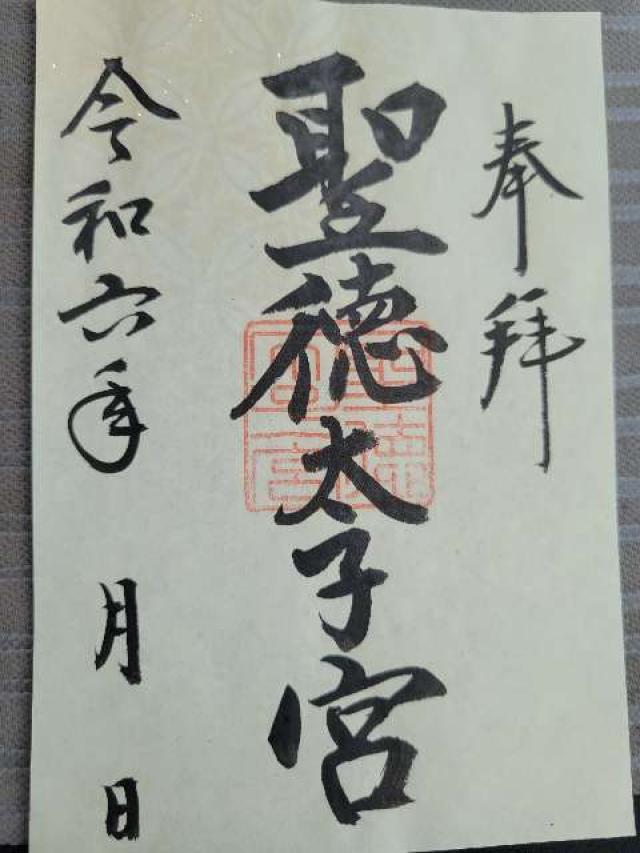 奉拝
聖徳太子宮
令和六年 月 日